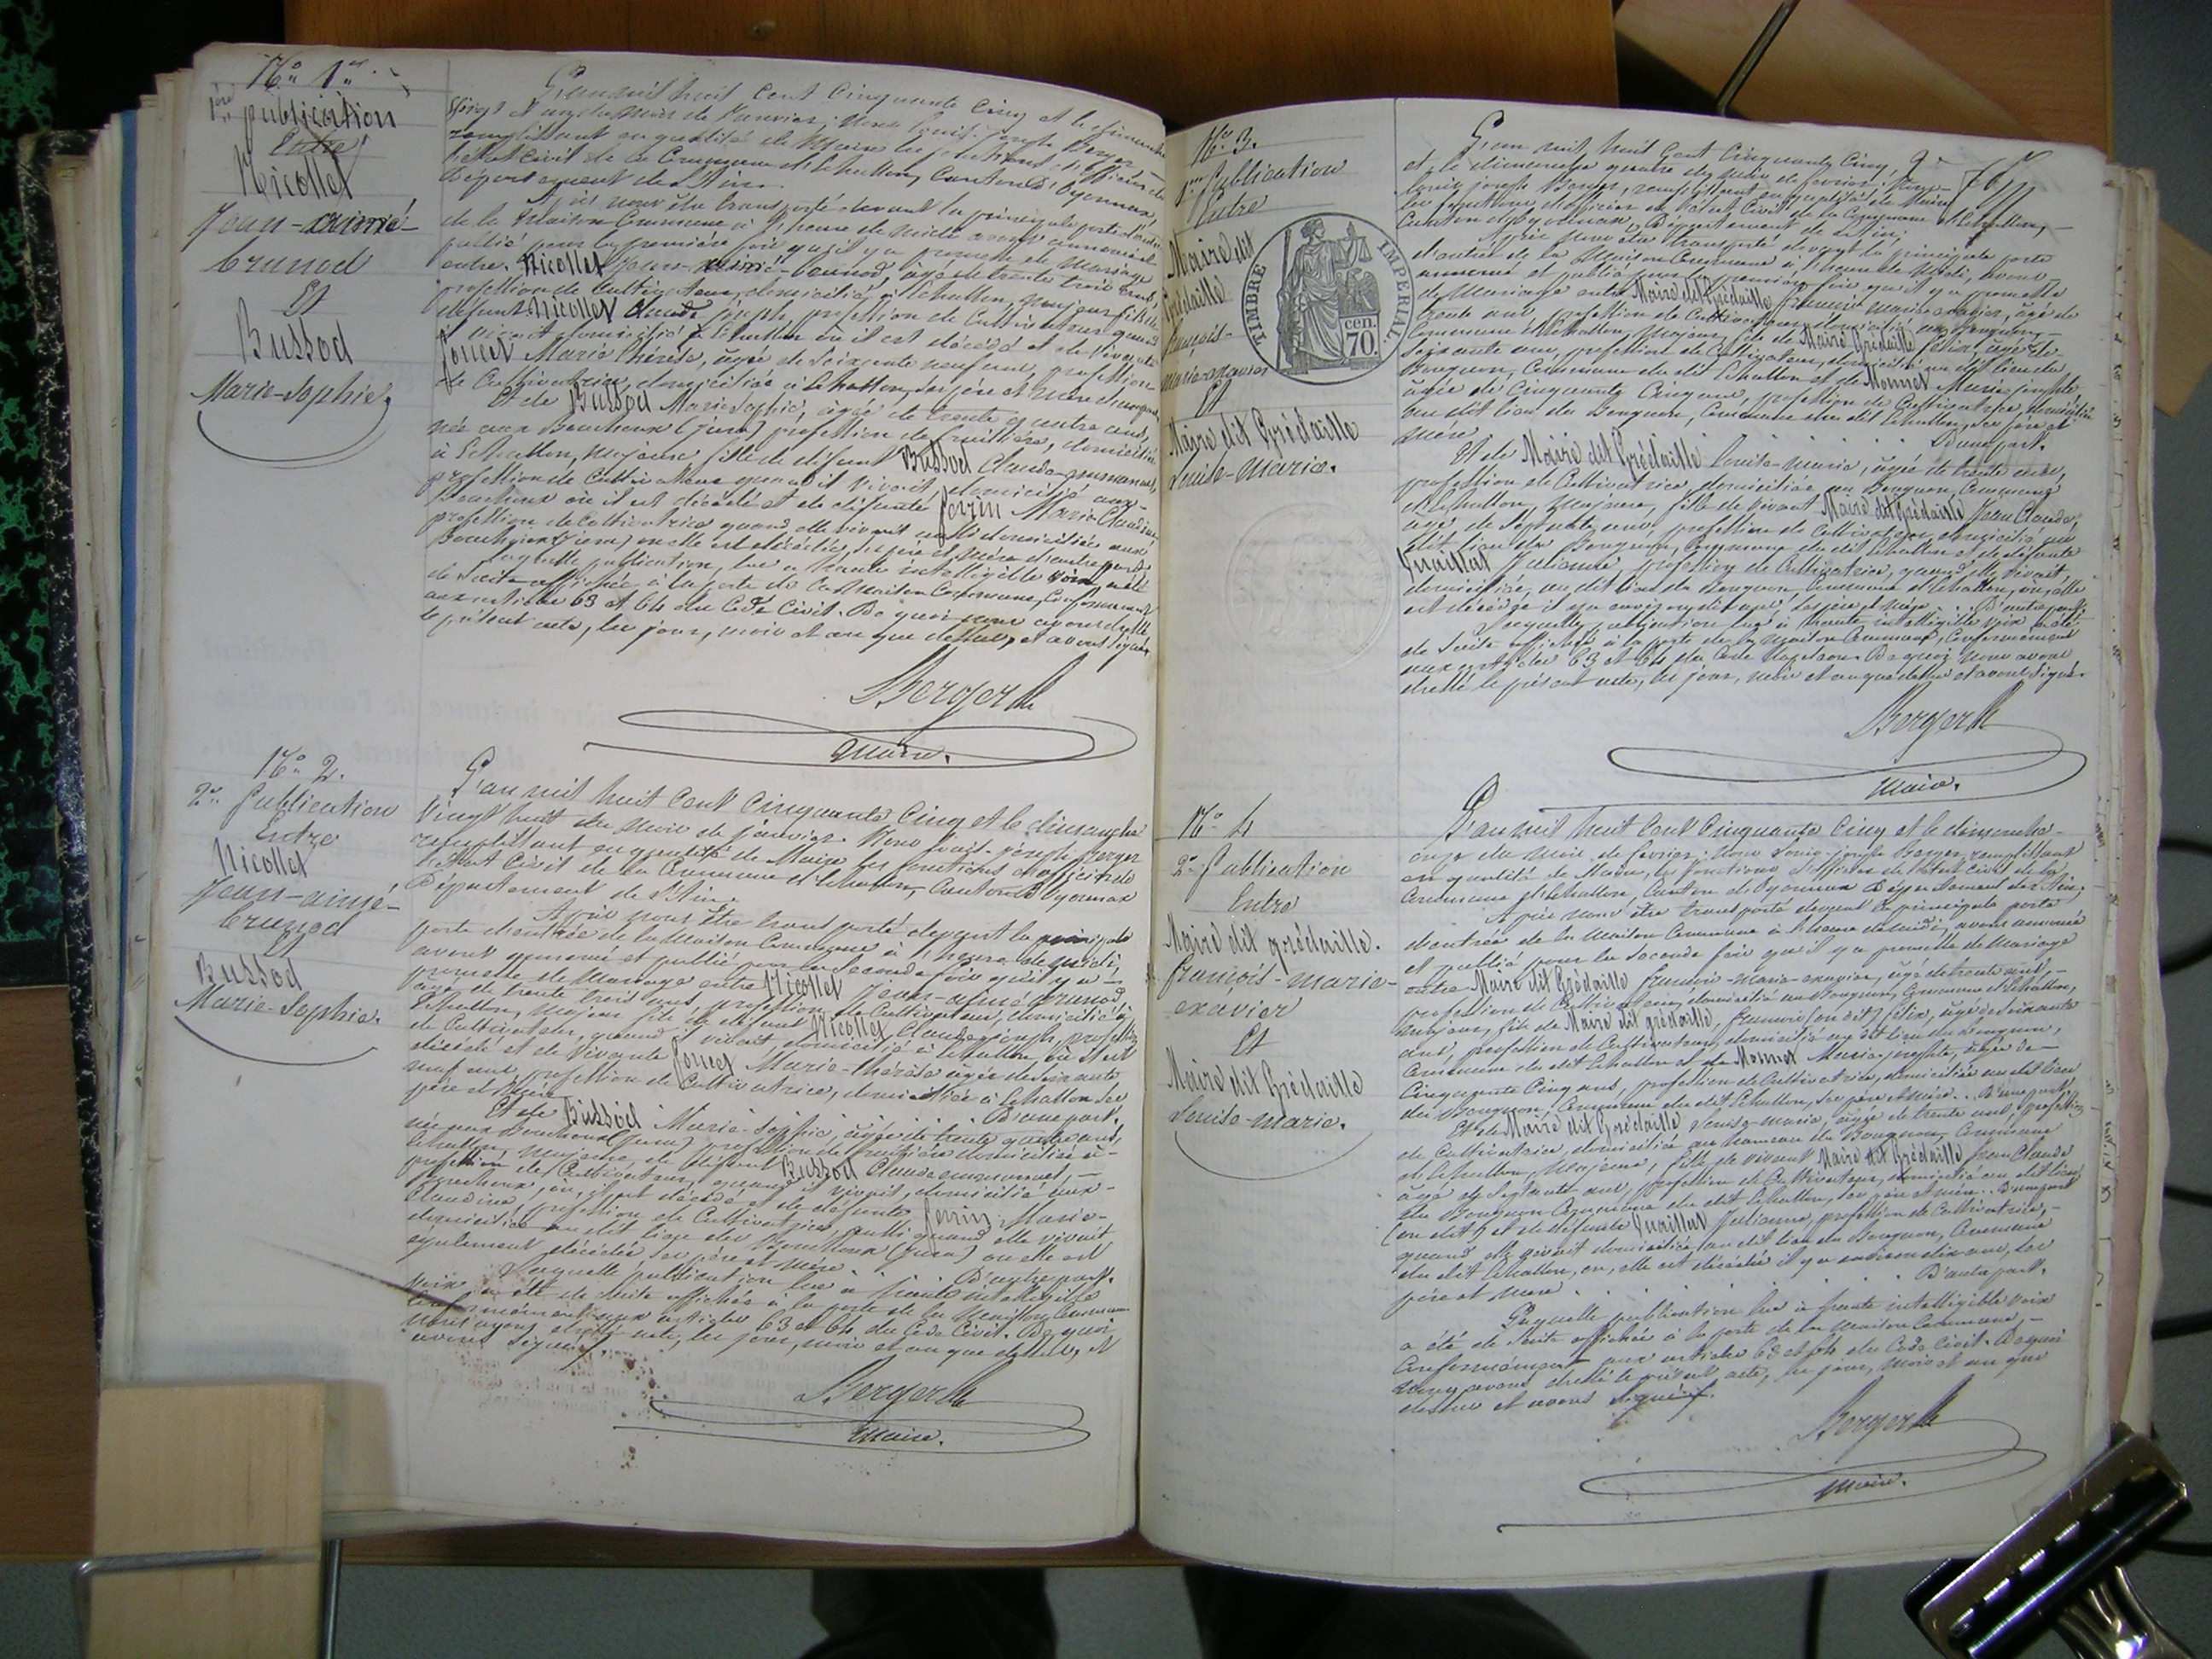 No 1er
1ère publication
Entre
Nicollet
Jean-aimé-
brunod
Et
Bussod
Marie-Sophie.
L'an mil huit cent cinquante cinq et le dimanche
vingt et un du mois de Janvier; nous Louis-Joseph Berger
remplissant en qualité de Maire les fonctions d'officier de
l'état civil de la Commune d'Echallon, Canton d'Oyonnax,
Département de l'Ain.
Après nous être transporté devant la principale porte d'entrée
de la Maison Commune à l'heure de midi avons annoncé et
publié pour la première fois qu'il y a promesse de mariage
entre Nicollet Jean-aimé-brunod, âgé de trente trois ans,
profession de Cultivateur, domicilié à Echallon, majeur fils de
défunt Nicollet Claude joseph, profession de Cultivateur quand
il vivait domicilié à Echallon où il est décédé et de vivante
Marie thérèse, âgée de soixante neuf ans, profession
de Cultivatrice, domiciliée à Echallon, ses père et mère d'une part,
Et de Bussod Marie Sophie, âgée de trente quatre ans,
née aux Bouchoux (jura) profession de fruitière, domiciliée
à Echallon, majeure fille de défunt Bussod Claude-emmanuel,
profession de Cultivateur quand il vivait domicilié aux
Bouchoux où il est décédé et de défunte Perrin Marie Claudine
profession de Cultivatrice quand elle vivait aussi domiciliée aux
Bouchoux (jura) où elle est décédée, ses père et mère d'autre part.
Laquelle publication, lue à haute intelligible voix, a été
de suite affichée à la porte de la Maison Commune, Conformément
aux articles 63 et 64 du Code Civil. De quoi nous avons dressé
le présent acte, les jour, mois et an que dessus, et avons signé.
Berger
Maire.
No 2.
2e Publication
Entre
Nicollet
Jean-aimé-
brunod
Et
Bussod
Marie-Sophie.
L'an mil huit Cent Cinquante Cinq et le dimanche
vingt huit du mois de janvier. Nous Louis-joseph Berger
remplissant en qualité de Maire les fonctions d'officier de
l'état Civil de la Commune d'Echallon, Canton d'Oyonnax
Département de l'Ain.
Après nous être transporté devant la principale
porte d'entrée de la Maison Commune à l'heure de midi,
avons annoncé et publié pour la seconde fois qu'il y a
promesse de Mariage entre Nicollet Jean-aimé brunod,
âgé de trente trois ans, profession de Cultivateur, domicilié à
Echallon, majeur fils de défunt Nicollet Claude joseph, profession
de Cultivateur, quand il vivait domicilié à Echallon, où il est
décédé et de vivante Marie-thérèse âgée de soixante
neuf ans, profession de Cultivatrice, domiciliée à Echallon ses
père et Mère D'une part.
Et de Bussod Marie-Sophie, âgée de trente quatre ans,
née aux Bouchoux (jura) profession de fruitière domiciliée à
Echallon, majeure, de défunt Bussod Claude emmanuel,
profession de Cultivateur, quand il vivait, domicilié aux
Bouchoux, où il est décédé et de défunte Perrin Marie-
Claudine, profession de Cultivatrice, aussi quand elle vivait
domiciliée au dit lieu des Bouchoux (jura) où elle est
également décédée ses père et mère. D'autre part.
Laquelle publication lue à haute intelligible
voix a été de suite affichée à la porte de la Maison Commune
Conformément aux articles 63 et 64 du Code Civil. De quoi
nous avons dressé acte, les jour, mois et an que dessus, et
avons signé.
Berger
Maire.
No 3.
1ère Publication
Entre
Maire dit
Grédaille
françois-
marie-exavier
Et
Maire dit Grédaille
Louise-Marie.
TIMBRE IMPERIAL
cen.
70.
L'an mil huit Cent Cinquante Cinq,
et le dimanche quatre du mois de février; Nous
louis joseph Berger, remplissant en qualité de Maire
les fonctions d'officier de l'état Civil de la Commune d'Echallon,
Canton d'Oyonnax, Département de l'Ain;
Après nous être transporté devant la principale porte
d'entrée de la Maison Commune à l'heure de Midi, avons
annoncé et publié pour la première fois qu'il y a promesse
de Mariage entre Maire dit Grédaille françois marie exavier, âgé de
trente ans profession de Cultivateur, domicilié au Bougnon,
Commune d'Echallon, Majeur, fils de Maire Grédaille félix, âgé de
soixante ans, profession de Cultivateur, domicilié au dit lieu du
Bougnon, Commune du dit Echallon et de Monnet Marie josephte,
âgée de Cinquante Cinq ans, profession de Cultivatrice, domiciliée
au dit lieu du Bougnon, Commune du dit Echallon, ses père et
mère D'une part.
Et de Maire dit Grédaille Louise-Marie, âgée de trente ans,
profession de Cultivatrice, domiciliée au Bougnon, Commune
d'Echallon, Majeure, fille de vivant Maire dit Grédaille Jean Claude,
âgé de Septante ans, profession de Cultivateur, domicilié au
dit lieu du Bougnon, Commune du dit Echallon et de défunte
Julienne, profession de Cultivatrice, quand elle vivait,
domiciliée, au dit lieu du Bougnon, Commune d'Echallon, où elle
est décédée il y a environ dix ans, ses père et mère. D'autre part.
Laquelle publication lue à haute intelligible voix a été
de suite affichée à la porte de la Maison Commune, Conformément
aux articles 63 et 64 du Code Napoléon. De quoi nous avons
dressé le présent acte, les jour, mois et an que dessus et avons signé.
Berger
Maire.
No 4
2e Publication
Entre
Maire dit grédaille.
françois-marie-
exavier
Et
Maire dit Grédaille
Louise-marie.
L'an mil huit Cent Cinquante Cinq et le dimanche
onze du mois de février; Nous Louis-joseph Berger remplissant
en qualité de Maire, les fonctions d'officier de l'état civil de la
Commune d'Echallon, Canton d'Oyonnax Département de l'Ain;
Après nous être transporté devant la principale porte
d'entrée de la Maison Commune à l'heure de midi; avons annoncé
et publié pour la seconde fois qu'il y a promesse de Mariage
entre Maire dit Grédaille françois-marie-exavier, âgé de trente ans,
profession de Cultivateur, domicilié au Bougnon, Commune d'Echallon,
majeur, fils de Maire dit grédaille, françois (on dit) félix, âgé de soixante
ans, profession de Cultivateur, domicilié au dit lieu du Bougnon,
Commune du dit Echallon et de Monnet Marie-josephte, âgée de
Cinquante Cinq ans, profession de Cultivatrice, domiciliée au dit lieu
du Bougnon, Commune du dit Echallon, ses père et mère. D'une part,
Et de Maire dit Grédaille Louise-Marie, âgée de trente ans, profession
de Cultivatrice, domiciliée au hameau du Bougnon, Commune
d'Echallon, Majeure, fille de vivant Maire dit Grédaille Jean Claude
âgé de Septante ans, profession de Cultivateur, domicilié au dit lieu
du Bougnon Commune du dit Echallon, ses père et mère. D'une part
(on dit) et de défunte Julienne, profession de Cultivatrice,
quand elle vivait domiciliée au dit lieu du Bougnon, Commune
du dit Echallon, où elle est décédée il y a environ dix ans, ses
père et mère D'autre part.
Laquelle publication lue à haute intelligible voix
a été de suite affichée à la porte de la Maison Commune,
Conformément aux articles 63 et 64 du Code Civil. De quoi
nous avons dressé le présent acte, les jour, mois et an que
dessus et avons signé.
Berger
Maire.